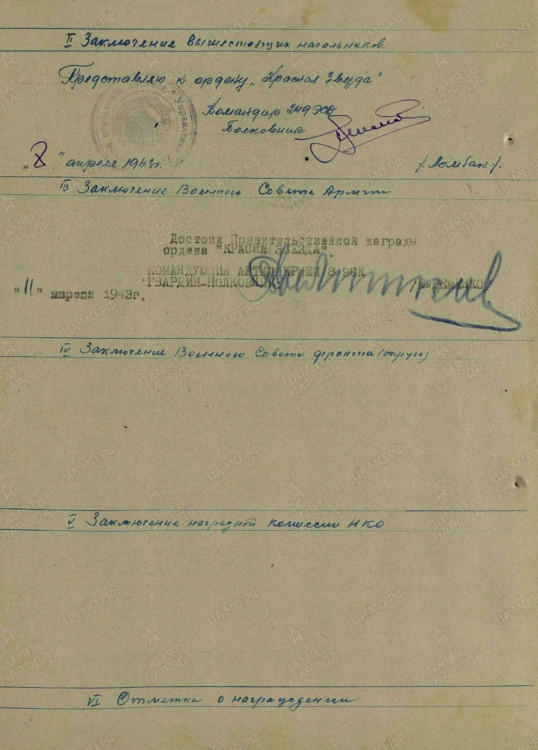 II Заключение вышестоящих начальников.
Представляю к ордену „Красная Звезда"
Командир 249 ЭСД
Полковник
„8" апреля 1943 г. /Ломбак/.
III Заключение Военного Совета Армии
Достоин Правительственной награды
ордена "КРАСНАЯ ЗВЕЗДА"
КОМАНДУЮЩИЙ АРТИЛЛЕРИЕЙ 8 ЭСК
ГВАРДИИ-ПОЛКОВНИК
"11" апреля 1943г.
IV Заключение Военного Совета фронта (округа)
V Заключение наградной комиссии НКО
VI Отметка о награждении